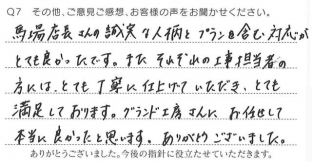 Q7 その他、ご意見ご感想、お客様の声をお聞かせください。
馬場店長さんの誠実な人柄とプランを含む対応が
とても良かったです。また それぞれの工事担当者の
方には、とても丁寧に仕上げていただき、とても
満足しております。グランド工房さんに お任せして
本当に良かったと思います。ありがとうございました。
ありがとうございました。今後の指針に役立たせていただきます。